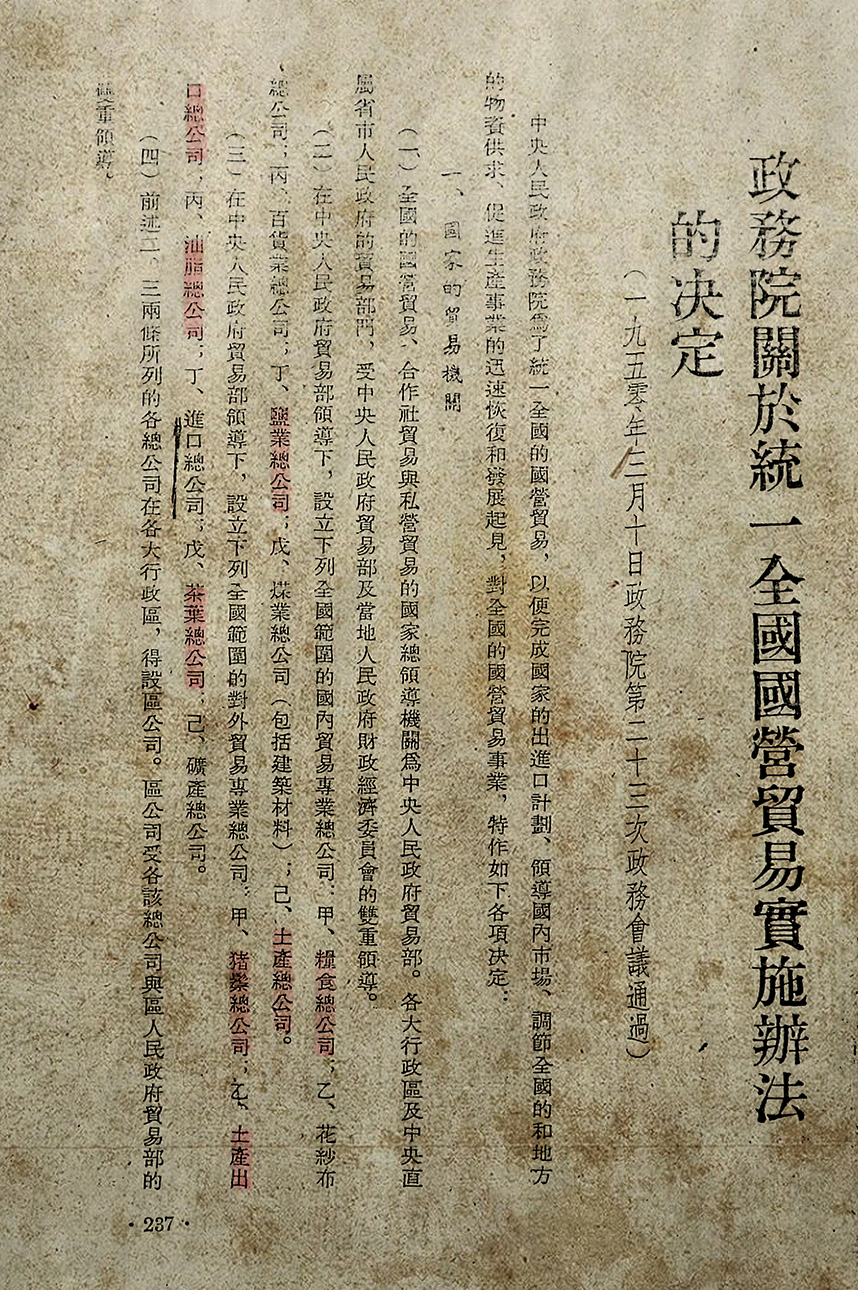 政務院關於統一全國國營貿易實施辦法
的決定
(一九五零年三月十日政務院第二十三次政務會議通過)
中央人民政府政務院爲了統一全國的國營貿易,以便完成國家的出進口計劃、領導國內市場、調節全國的和地方
的物資供求、促進生產事業的迅速恢復和發展起見,對全國的國營貿易事業,特作如下各項決定:
一、國家的貿易機關
(一)全國的國營貿易、合作社貿易與私營貿易的國家總領導機關爲中央人民政府貿易部。各大行政區及中央直
屬省市人民政府的貿易部門,受中央人民政府貿易部及當地人民政府財政經濟委員會的雙重領導。
(二)在中央人民政府貿易部領導下,設立下列全國範圍的國內貿易專業總公司:甲、糧食總公司;乙、花紗布
總公司;丙、百貨業總公司;丁、鹽業總公司;戊、煤業總公司(包括建築材料);己、土產總公司。
(三)在中央人民政府貿易部領導下,設立下列全國範圍的對外貿易專業總公司:甲、猪鬃總公司;乙、土產出
口總公司;丙、油脂總公司;丁、進口總公司;戊、茶葉總公司;己、礦產總公司。
(四)前述二、三兩條所列的各總公司在各大行政區,得設區公司。區公司受各該總公司與區人民政府貿易部的
雙重領導。
·237·